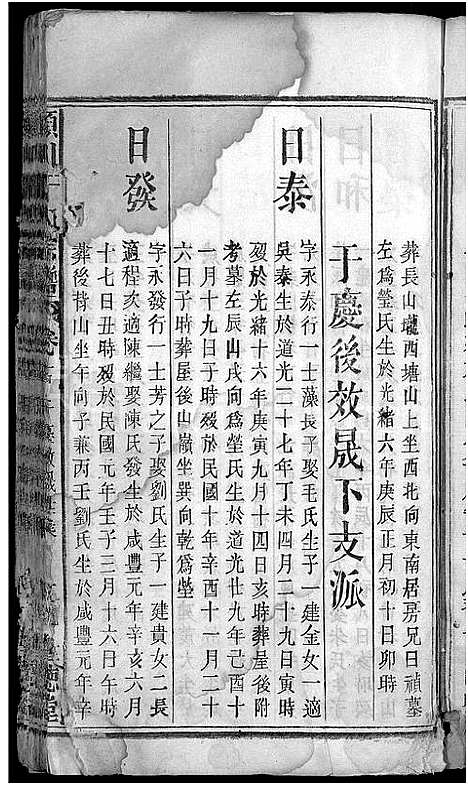 葬長山壠西塘山上坐西北向東南居房兄日禎墓
左爲塋氏生於光緒六年庚辰正月初十日卯時
于慶後效晟下支派
日泰
字永泰行一士藻長子娶毛氏生子一建金女一適
吳泰生於道光二十七年丁未四月二十九日寅時
歿於光緒十六年庚寅九月十四日亥時葬屋後附
考墓左辰山戌向爲塋氏生於道光廿九年己酉十
一月十九日子時歿於民國十年辛酉十一月二十
六日子時葬屋後山嶺坐巽向乾爲塋
日發
字永發行一士芳之子娶劉氏生子一建貴女二長
適程次適陳繼娶陳氏發生於咸豐元年辛亥六月
十七日丑時歿於民國元年壬子三月十六日午時
葬後背山坐午向子兼丙壬劉氏生於咸豐元年辛